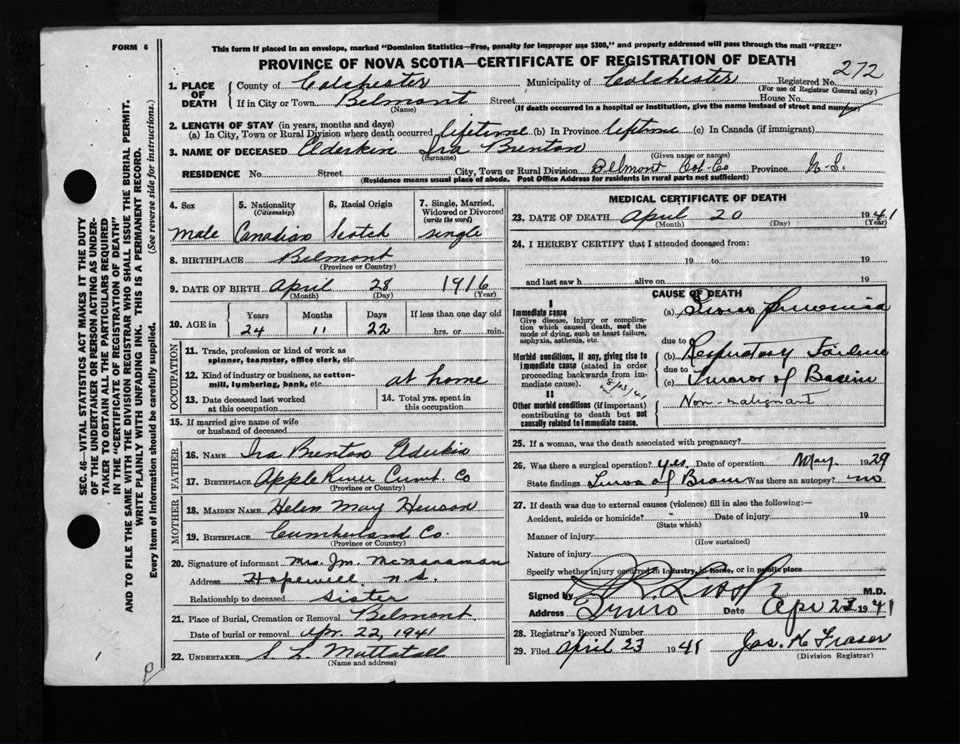 FORM 6
This form if placed in an envelope, marked "Dominion Statistics—Free, penalty for improper use $300," and properly addressed will pass through the mail "FREE"
PROVINCE OF NOVA SCOTIA—CERTIFICATE OF REGISTRATION OF DEATH
272
1. PLACE OF DEATH County of Colchester Municipality of Colchester Registered No.
(For use of Registrar General only)
If in City or Town Belmont Street House No.
(Name) (If death occurred in a hospital or institution, give the name instead of street and number)
2. LENGTH OF STAY (in years, months and days)
(a) In City, Town or Rural Division where death occurred lifetime (b) In Province lifetime (c) In Canada (if immigrant)
3. NAME OF DECEASED Elderkin Ira Brenton
(Surname) (Given name or names)
RESIDENCE No. Street City, Town or Rural Division Belmont Col-Co Province N.S.
(Residence means usual place of abode. Post Office Address for residents in rural parts not sufficient)
4. Sex 5. Nationality (Citizenship) 6. Racial Origin 7. Single, Married, Widowed or Divorced (write the word)
male Canadian Scotch single
8. BIRTHPLACE Belmont
(Province or Country)
9. DATE OF BIRTH April 28 1916
(Month) (Day) (Year)
10. AGE in Years Months Days If less than one day old
24 11 22 hrs. or min.
OCCUPATION
11. Trade, profession or kind of work as spinner, teamster, office clerk, etc.
12. Kind of industry or business, as cotton-mill, lumbering, bank, etc. at home
13. Date deceased last worked at this occupation 14. Total yrs. spent in this occupation
15. If married give name of wife or husband of deceased
FATHER
16. Name Ira Brenton Elderkin
17. Birthplace Apple River Cumb Co
(Province or Country)
MOTHER
18. Maiden Name Helen May Henson
19. Birthplace Cumberland Co.
(Province or Country)
20. Signature of informant Mrs. Jm. McNamaman
Address Hopewell N.S.
Relationship to deceased sister
21. Place of Burial, Cremation or Removal Belmont
Date of burial or removal Apr. 22, 1941
22. UNDERTAKER S L Mattatall
(Name and address)
MEDICAL CERTIFICATE OF DEATH
23. DATE OF DEATH April 20 1941
(Month) (Day) (Year)
24. I HEREBY CERTIFY that I attended deceased from:
19 to 19
and last saw h alive on 19
CAUSE OF DEATH
I
Immediate cause
Give disease, injury or complication which caused death, not the mode of dying, such as heart failure, asphyxia, asthenia, etc.
(a) Pneumonia
due to
Morbid conditions, if any, giving rise to immediate cause (stated in order proceeding backwards from immediate cause).
(b) Respiratory Failure
due to
(c) Tumor of Brain
II
Other morbid conditions (if important) contributing to death but not causally related to immediate cause.
Non-malignant
25. If a woman, was the death associated with pregnancy?
26. Was there a surgical operation? yes Date of operation May 1929
State findings Tumor of Brain Was there an autopsy? no
27. If death was due to external causes (violence) fill in also the following:
Accident, suicide or homicide? Date of injury 19
(State which)
Manner of injury
(How sustained)
Nature of injury
Specify whether injury occurred in industry, in home, or in public place
Signed by M.D.
Address Truro Date Apr 23 1941
28. Registrar's Record Number
29. Filed April 23 1941 Jas. K Fraser
(Division Registrar)
SEC. 46—VITAL STATISTICS ACT MAKES IT THE DUTY
OF THE UNDERTAKER OR PERSON ACTING AS UNDERTAKER
TO OBTAIN ALL THE PARTICULARS REQUIRED
IN THE "CERTIFICATE OF REGISTRATION OF DEATH"
AND TO FILE THE SAME WITH THE DIVISION REGISTRAR WHO SHALL ISSUE THE BURIAL PERMIT.
WRITE PLAINLY WITH UNFADING INK. THIS IS A PERMANENT RECORD.
Every item of Information should be carefully supplied. (See reverse side for instructions.)